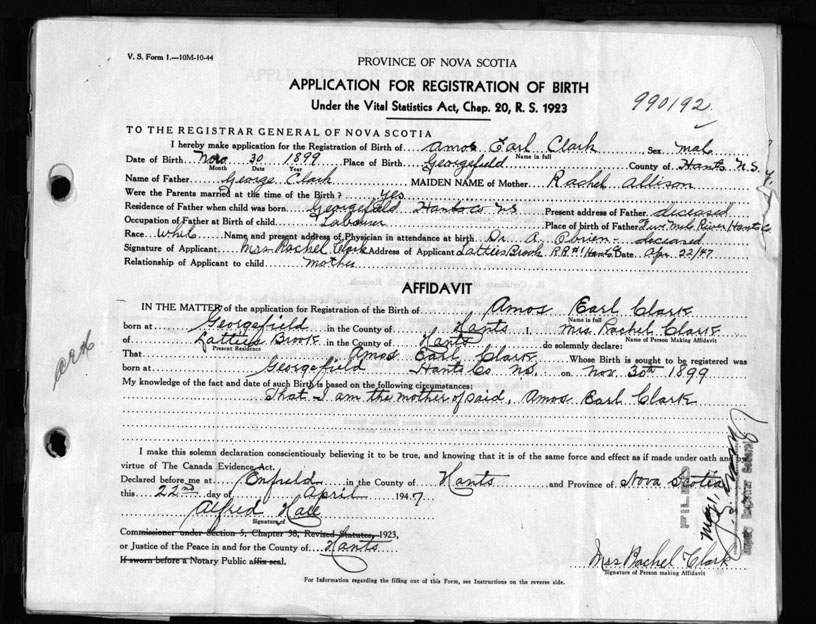 V. S. Form 1.—10M-10-44
PROVINCE OF NOVA SCOTIA
APPLICATION FOR REGISTRATION OF BIRTH
Under the Vital Statistics Act, Chap. 20, R. S. 1923
990192
TO THE REGISTRAR GENERAL OF NOVA SCOTIA
I hereby make application for the Registration of Birth of Amos Earl Clark Sex male
Name in full
Date of Birth Nov 30 1899 Place of Birth Georgefield County of Hants N.S.
Month Date Year
Name of Father George Clark MAIDEN NAME of Mother Rachel Allison
Were the Parents married at the time of the Birth? yes
Residence of Father when child was born Georgefield Hants Co NS Present address of Father deceased
Occupation of Father at Birth of child Labourer Place of Birth of Father Five Mile River Hants Co
Race White Name and present address of Physician in attendance at birth Dr. A. O'Brien - deceased
Signature of Applicant Mrs Rachel Clark Address of Applicant Latties Brook RR #1 Hants Date Apr. 22/47
Relationship of Applicant to child mother
AFFIDAVIT
IN THE MATTER of the application for Registration of the Birth of Amos Earl Clark
Name in full
born at Georgefield in the County of Hants I, Mrs. Rachel Clark
Name of Person Making Affidavit
of Latties Brook in the County of Hants do solemnly declare:
Present Residence
That Amos Earl Clark Whose Birth is sought to be registered was
born at Georgefield Hants Co NS. on Nov. 30th 1899
My knowledge of the fact and date of such Birth is based on the following circumstances:
That I am the mother of said, Amos Earl Clark
I make this solemn declaration conscientiously believing it to be true, and knowing that it is of the same force and effect as if made under oath and by
virtue of The Canada Evidence Act.
Declared before me at Enfield in the County of Hants and Province of Nova Scotia
this 22nd day of April 1947
Alfred Hall
Signature of
Commissioner under Section 5, Chapter 38, Revised Statutes, 1923,
or Justice of the Peace in and for the County of Hants
If sworn before a Notary Public affix seal.
Mrs Rachel Clark
Signature of Person making Affidavit
For Information regarding the filling out of this Form, see Instructions on the reverse side.
FILED